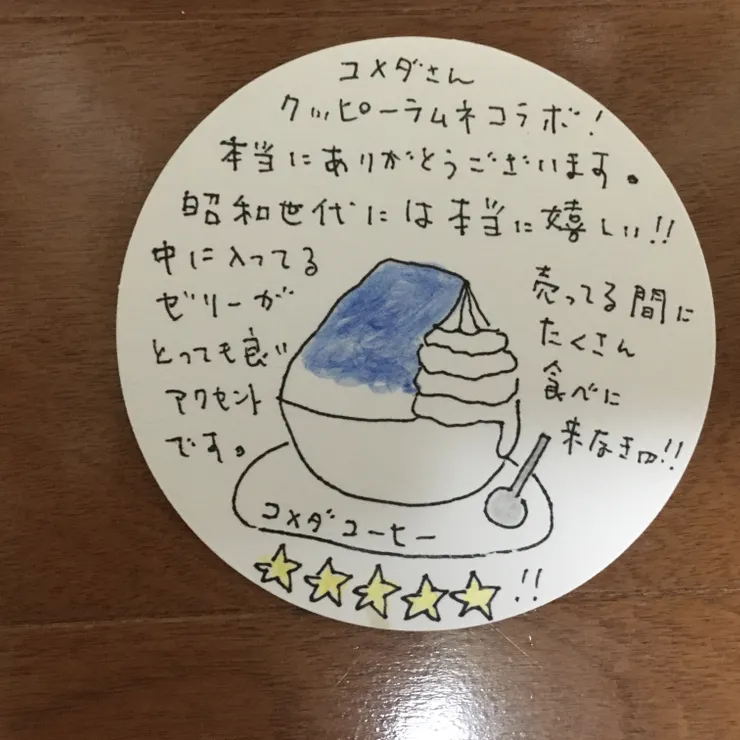 コメダさん
クッピーラムネコラボ！
本当にありがとうございます。
昭和世代には本当に嬉しい!!
中に入ってる
ゼリーが
とっても良い
アクセント
です。
売ってる間に
たくさん
食べに
来なきゅ!!
コメダコーヒー
!!